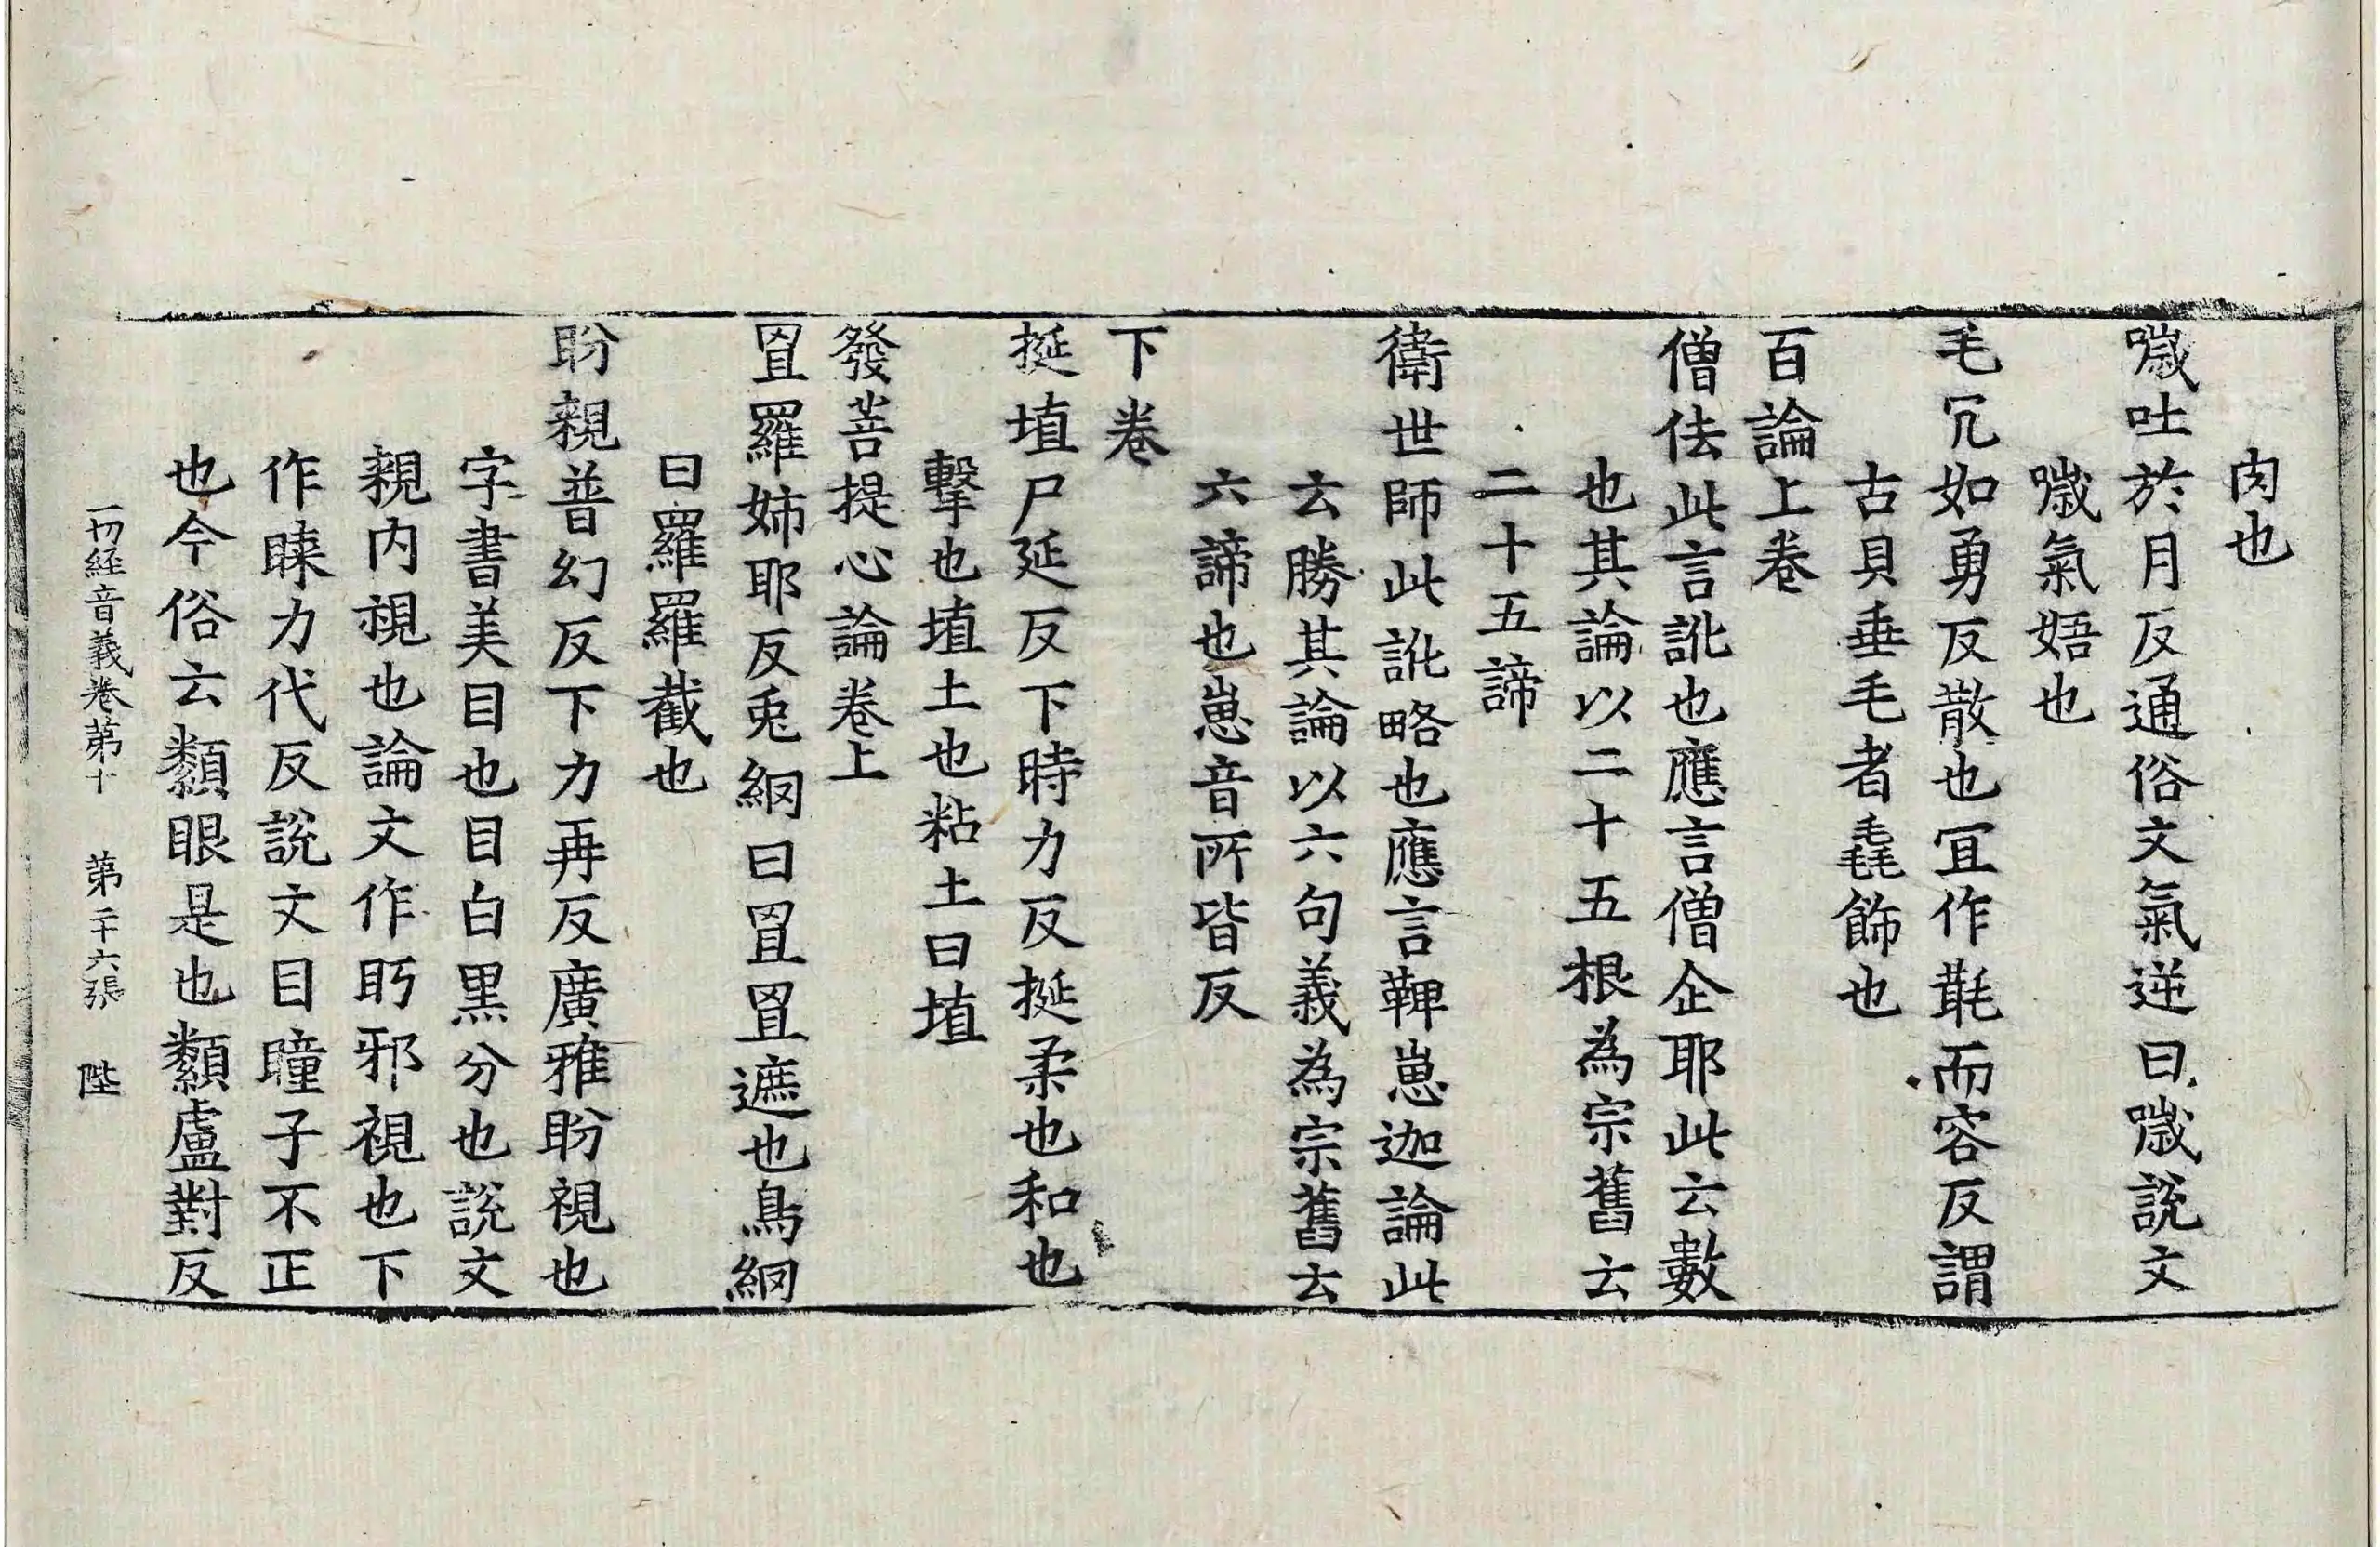 肉也
噦吐於月反通俗文氣逆曰噦說文
噦氣啎也
毛冗如勇反散也冝作毦而容反謂
古貝垂毛者毳飾也
百論上卷
僧佉此言訛也應言僧企耶此云數
也其論以二十五根為宗舊云
二十五諦
衛世師此訛略也應言鞞崽迦論此
云勝其論以六句義為宗舊云
六諦也崽音所皆反
下卷
挻埴尸延反下時力反挻柔也和也
擊也埴土也粘土曰埴
發菩提心論卷上
罝羅姉耶反兎網曰罝罝遮也鳥網
曰羅羅截也
盼親普幻反下力再反廣雅盼視也
字書美目也目白黑分也說文
親内視也論文作眄邪視也下
作睞力代反說文目瞳子不正
也今俗云纇眼是也纇盧對反
一切経音義卷苐十 苐二十六張 陛